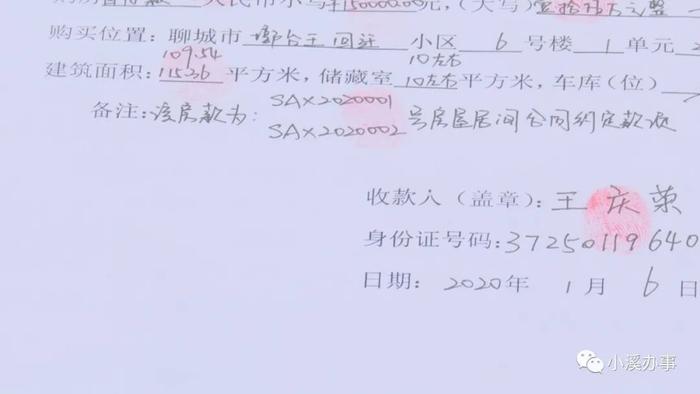 人民币小写 150000.00元,(大写)壹拾伍万元整
购买位置:聊城市 郭台王回迁 小区 6 号楼 1 单元
109.54 10左右
建筑面积:115.26 平方米,储藏室 10左右 平方米,车库(位)
SAX2020001
备注:该房款为: 号房屋居间合同约定款项
SAX2020002
收款人(盖章):王庆荣
身份证号码:37250119640
日期: 2020年 1月 6日
小溪办事